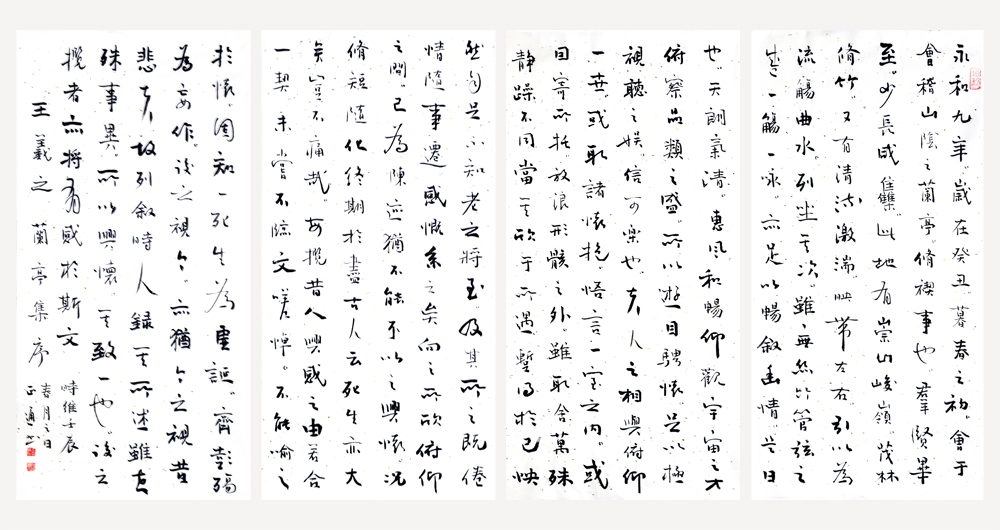 永和九年歲在癸丑暮春之初會于
會稽山陰之蘭亭脩禊事也羣賢畢
至少長咸集此地有崇山峻嶺茂林
脩竹又有清流激湍映帶左右引以為
流觴曲水列坐其次雖無絲竹管弦之
盛一觴一詠亦足以暢敘幽情是日
也天朗氣清惠風和暢仰觀宇宙之大
俯察品類之盛所以遊目騁懷足以極
視聽之娛信可樂也夫人之相與俯仰
一世或取諸懷抱悟言一室之內或
因寄所托放浪形骸之外雖取舍萬殊
靜躁不同當其欣于所遇暫得於己怏
然自足不知老之將至及其所之既倦
情隨事遷感慨系之矣向之所欣俯仰
之間已為陳迹猶不能不以之興懷況
脩短隨化終期於盡古人云死生亦大
矣豈不痛哉每攬昔人興感之由若合
一契未嘗不臨文嗟悼不能喻之
於懷固知一死生為虛誕齊彭殤
為妄作後之視今亦猶今之視昔
悲夫故列敘時人錄其所述雖世
殊事異所以興懷其致一也後之
攬者亦將有感於斯文
王羲之 蘭亭集序
時維壬辰
春月之日
正通